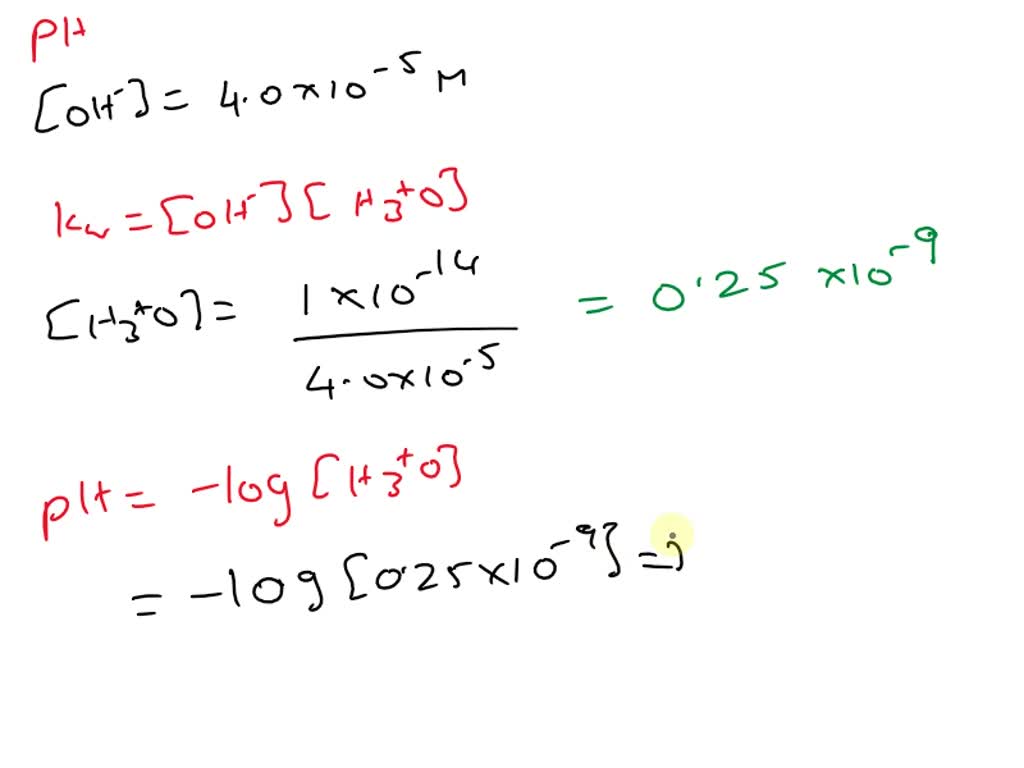 pH
[OH⁻] = 4.0 x 10⁻⁵ M
Kw = [OH⁻] [H₃⁺O]
[H₃⁺O] = 1 x 10⁻¹⁴ / 4.0 x 10⁻⁵ = 0.25 x 10⁻⁹
pH = -log [H₃⁺O]
= -log [0.25 x 10⁻⁹] =